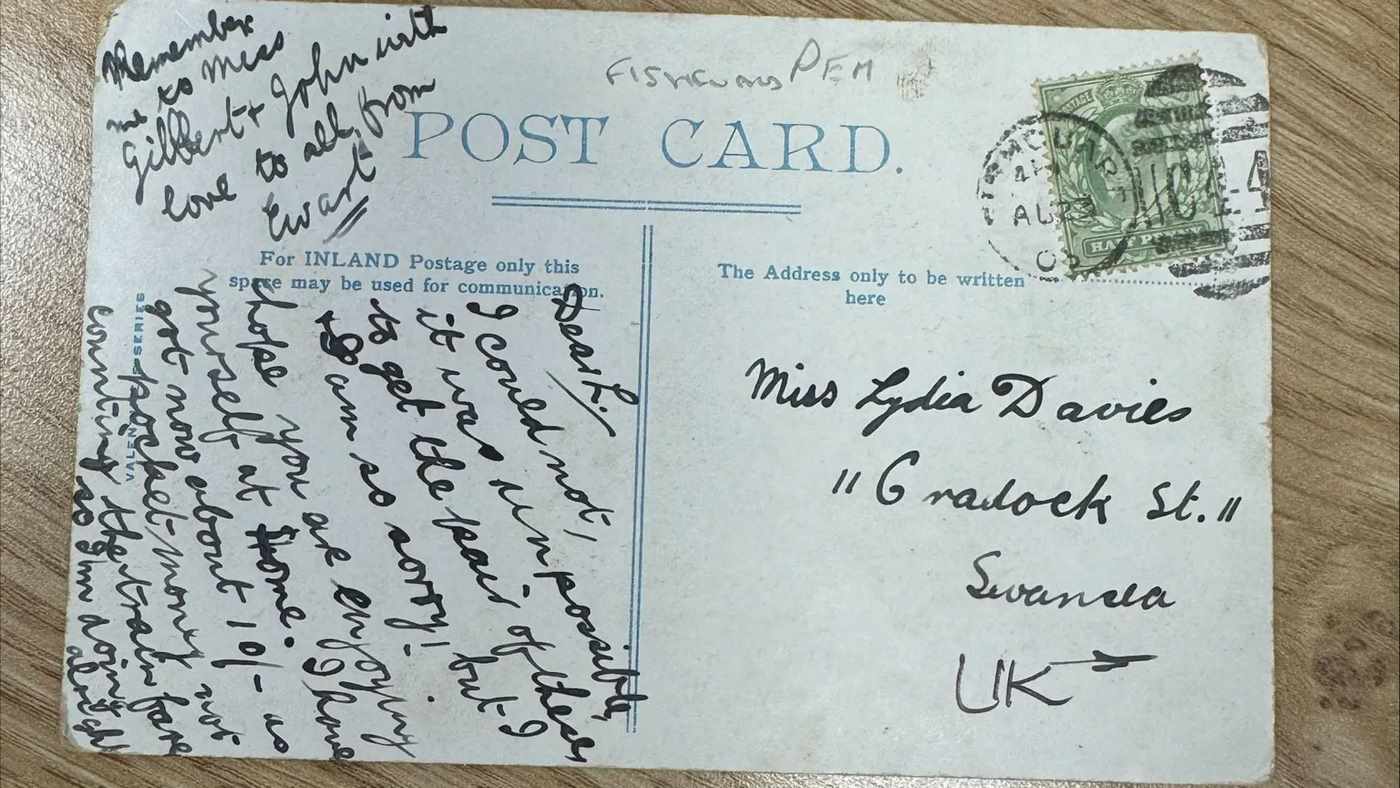 FISHGUARD PEM
POST CARD.
For INLAND Postage only this
space may be used for communication.
The Address only to be written
here
HALF PENNY
POSTAGE
AU 23
Miss Lydia Davies
"Cradock St."
Swansea
UK
VALENTINE'S SERIES
Dear L./
I could not,
it was unpossible,
to get the pair of these
& I am so sorry! but I
hope you are enjoying
yourself at Home. I have
got now about 10/- as
pocket money not
counting the train fare
so I'm doing
alright
Remember
me to Miss
Gilbert & John with
love to all, from
Ewart